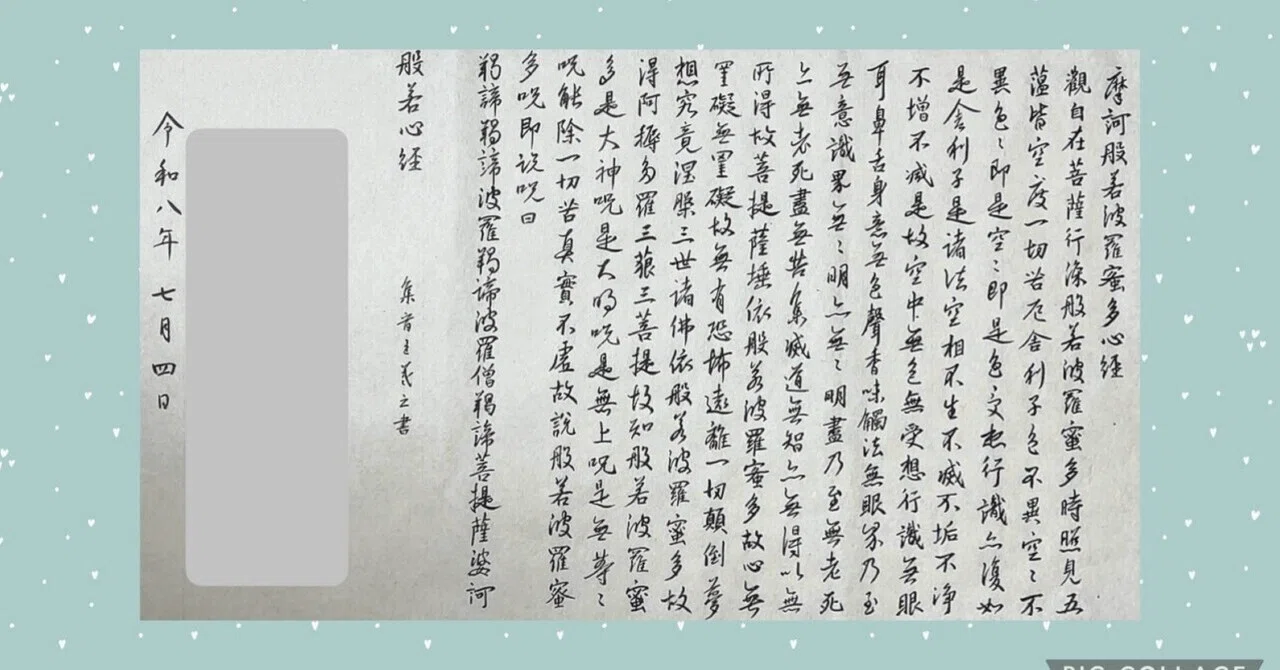 摩訶般若波羅蜜多心経
觀自在菩薩行深般若波羅蜜多時照見五
蘊皆空度一切苦厄舍利子色不異空〻不
異色〻即是空〻即是色受想行識亦復如
是舍利子是諸法空相不生不滅不垢不淨
不增不減是故空中無色無受想行識無眼
耳鼻舌身意無色聲香味觸法無眼界乃至
無意識界無〻明亦無〻明盡乃至無老死
亦無老死盡無苦集滅道無智亦無得以無
所得故菩提薩埵依般若波羅蜜多故心無
罣礙無罣礙故無有恐怖遠離一切顛倒夢
想究竟涅槃三世諸佛依般若波羅蜜多故
得阿耨多羅三藐三菩提故知般若波羅蜜
多是大神呪是大明呪是無上呪是無等〻
呪能除一切苦真實不虛故說般若波羅蜜
多呪即說呪曰
羯諦羯諦波羅羯諦波羅僧羯諦菩提薩婆訶
般若心経
集晋王羲之書
令和八年七月四日
PIC COLLAGE